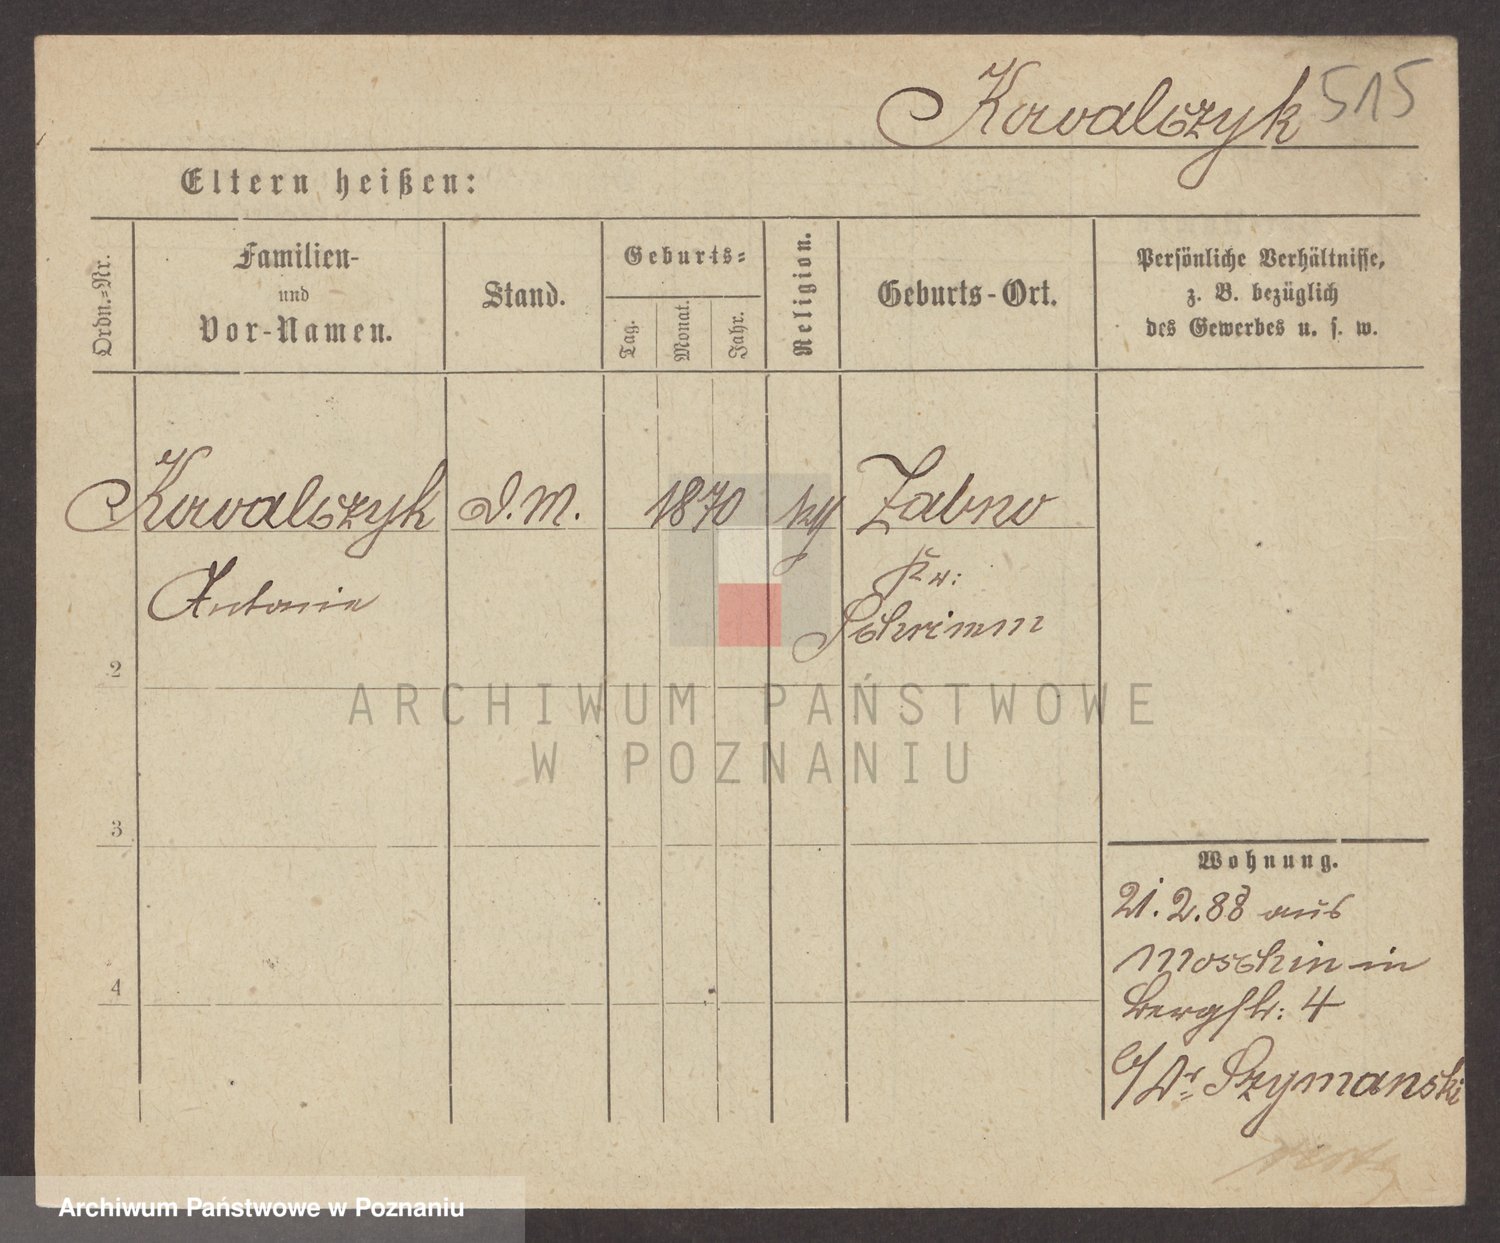 Kowalczyk 515
Eltern heißen:
Ordn.=Nr.
Familien-
und
Vor-Namen.
Stand.
Geburts=
Tag.
Monat.
Jahr.
Religion.
Geburts-Ort.
Persönliche Verhältnisse,
z. B. bezüglich
des Gewerbes u. s. w.
Kowalczyk D.M. 1870 Zabno
Antonie
Kr:
Schrimm
2
3
4
ARCHIWUM PAŃSTWOWE
W POZNANIU
Wohnung.
21.2.88 aus
Moschin in
Bergstr: 4
b/Dr Szymanski
Archiwum Państwowe w Poznaniu